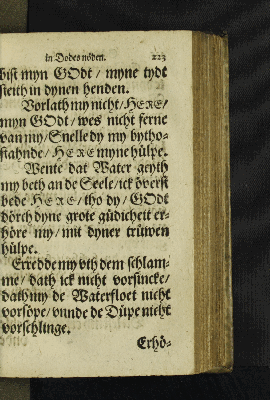 in Dodes nöden. 223
bist myn GOdt / myne tydt
steith in dynen henden.
Vorlath my nicht / HERE /
myn GOdt / wes nicht ferne
van my / Snelle dy my bytho-
stahnde / HERE myne hülpe.
Wente dat Water geyth
my beth an de Seele / ick överst
bede HERE / tho dy / GOdt
dörch dyne grote güdicheit er-
höre my / mit dyner trüwen
hülpe.
Erredde my vth dem schlam-
me / dath ick nicht vorsincke /
dath my de Waterfloet nicht
vorsöpe / vnde de Düpe nicht
vorschlinge.
Erhö-